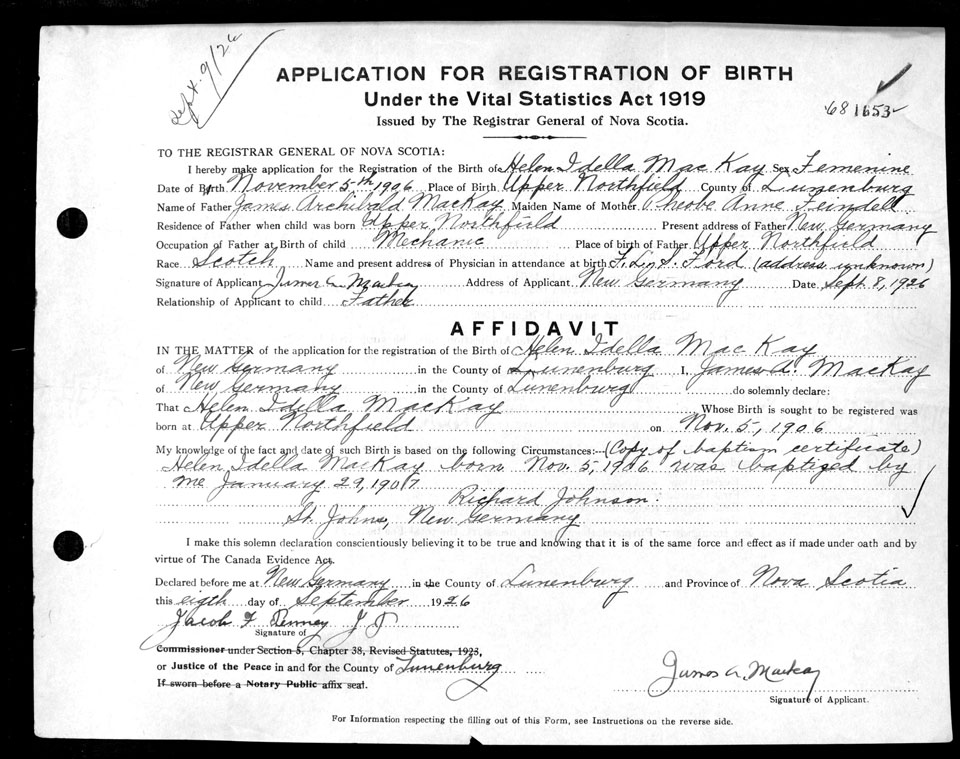 Sept. 9/26
APPLICATION FOR REGISTRATION OF BIRTH
Under the Vital Statistics Act 1919
Issued by The Registrar General of Nova Scotia.
68 1653
TO THE REGISTRAR GENERAL OF NOVA SCOTIA:
I hereby make application for the Registration of the Birth of Helen Idella MacKay Sex Femenine
Date of Birth November 5th 1906 Place of Birth Upper Northfield County of Lunenburg
Name of Father James Archibald MacKay Maiden Name of Mother Pheobe Anne Feindell
Residence of Father when child was born Upper Northfield Present address of Father New Germany
Occupation of Father at Birth of child Mechanic Place of birth of Father Upper Northfield
Race Scotch Name and present address of Physician in attendance at birth F. L. S. Ford (address unknown)
Signature of Applicant James A Mackay Address of Applicant New Germany Date Sept. 8, 1926
Relationship of Applicant to child Father
AFFIDAVIT
IN THE MATTER of the application for the registration of the Birth of Helen Idella MacKay
of New Germany in the County of Lunenburg I, James A. MacKay
of New Germany in the County of Lunenburg do solemnly declare:
That Helen Idella MacKay Whose Birth is sought to be registered was
born at Upper Northfield on Nov. 5, 1906
My knowledge of the fact and date of such Birth is based on the following Circumstances:— (Copy of baptism certificate)
Helen Idella MacKay born Nov. 5, 1906 was baptized by
me January 29, 1907
Richard Johnson.
St. Johns, New Germany
I make this solemn declaration conscientiously believing it to be true and knowing that it is of the same force and effect as if made under oath and by
virtue of The Canada Evidence Act.
Declared before me at New Germany in the County of Lunenburg and Province of Nova Scotia
this eigth day of September 1926
Jacob F Penney J P
Signature of
Commissioner under Section 5, Chapter 38, Revised Statutes, 1923,
or Justice of the Peace in and for the County of Lunenburg
If sworn before a Notary Public affix seal.
James A Mackay
Signature of Applicant.
For Information respecting the filling out of this Form, see Instructions on the reverse side.